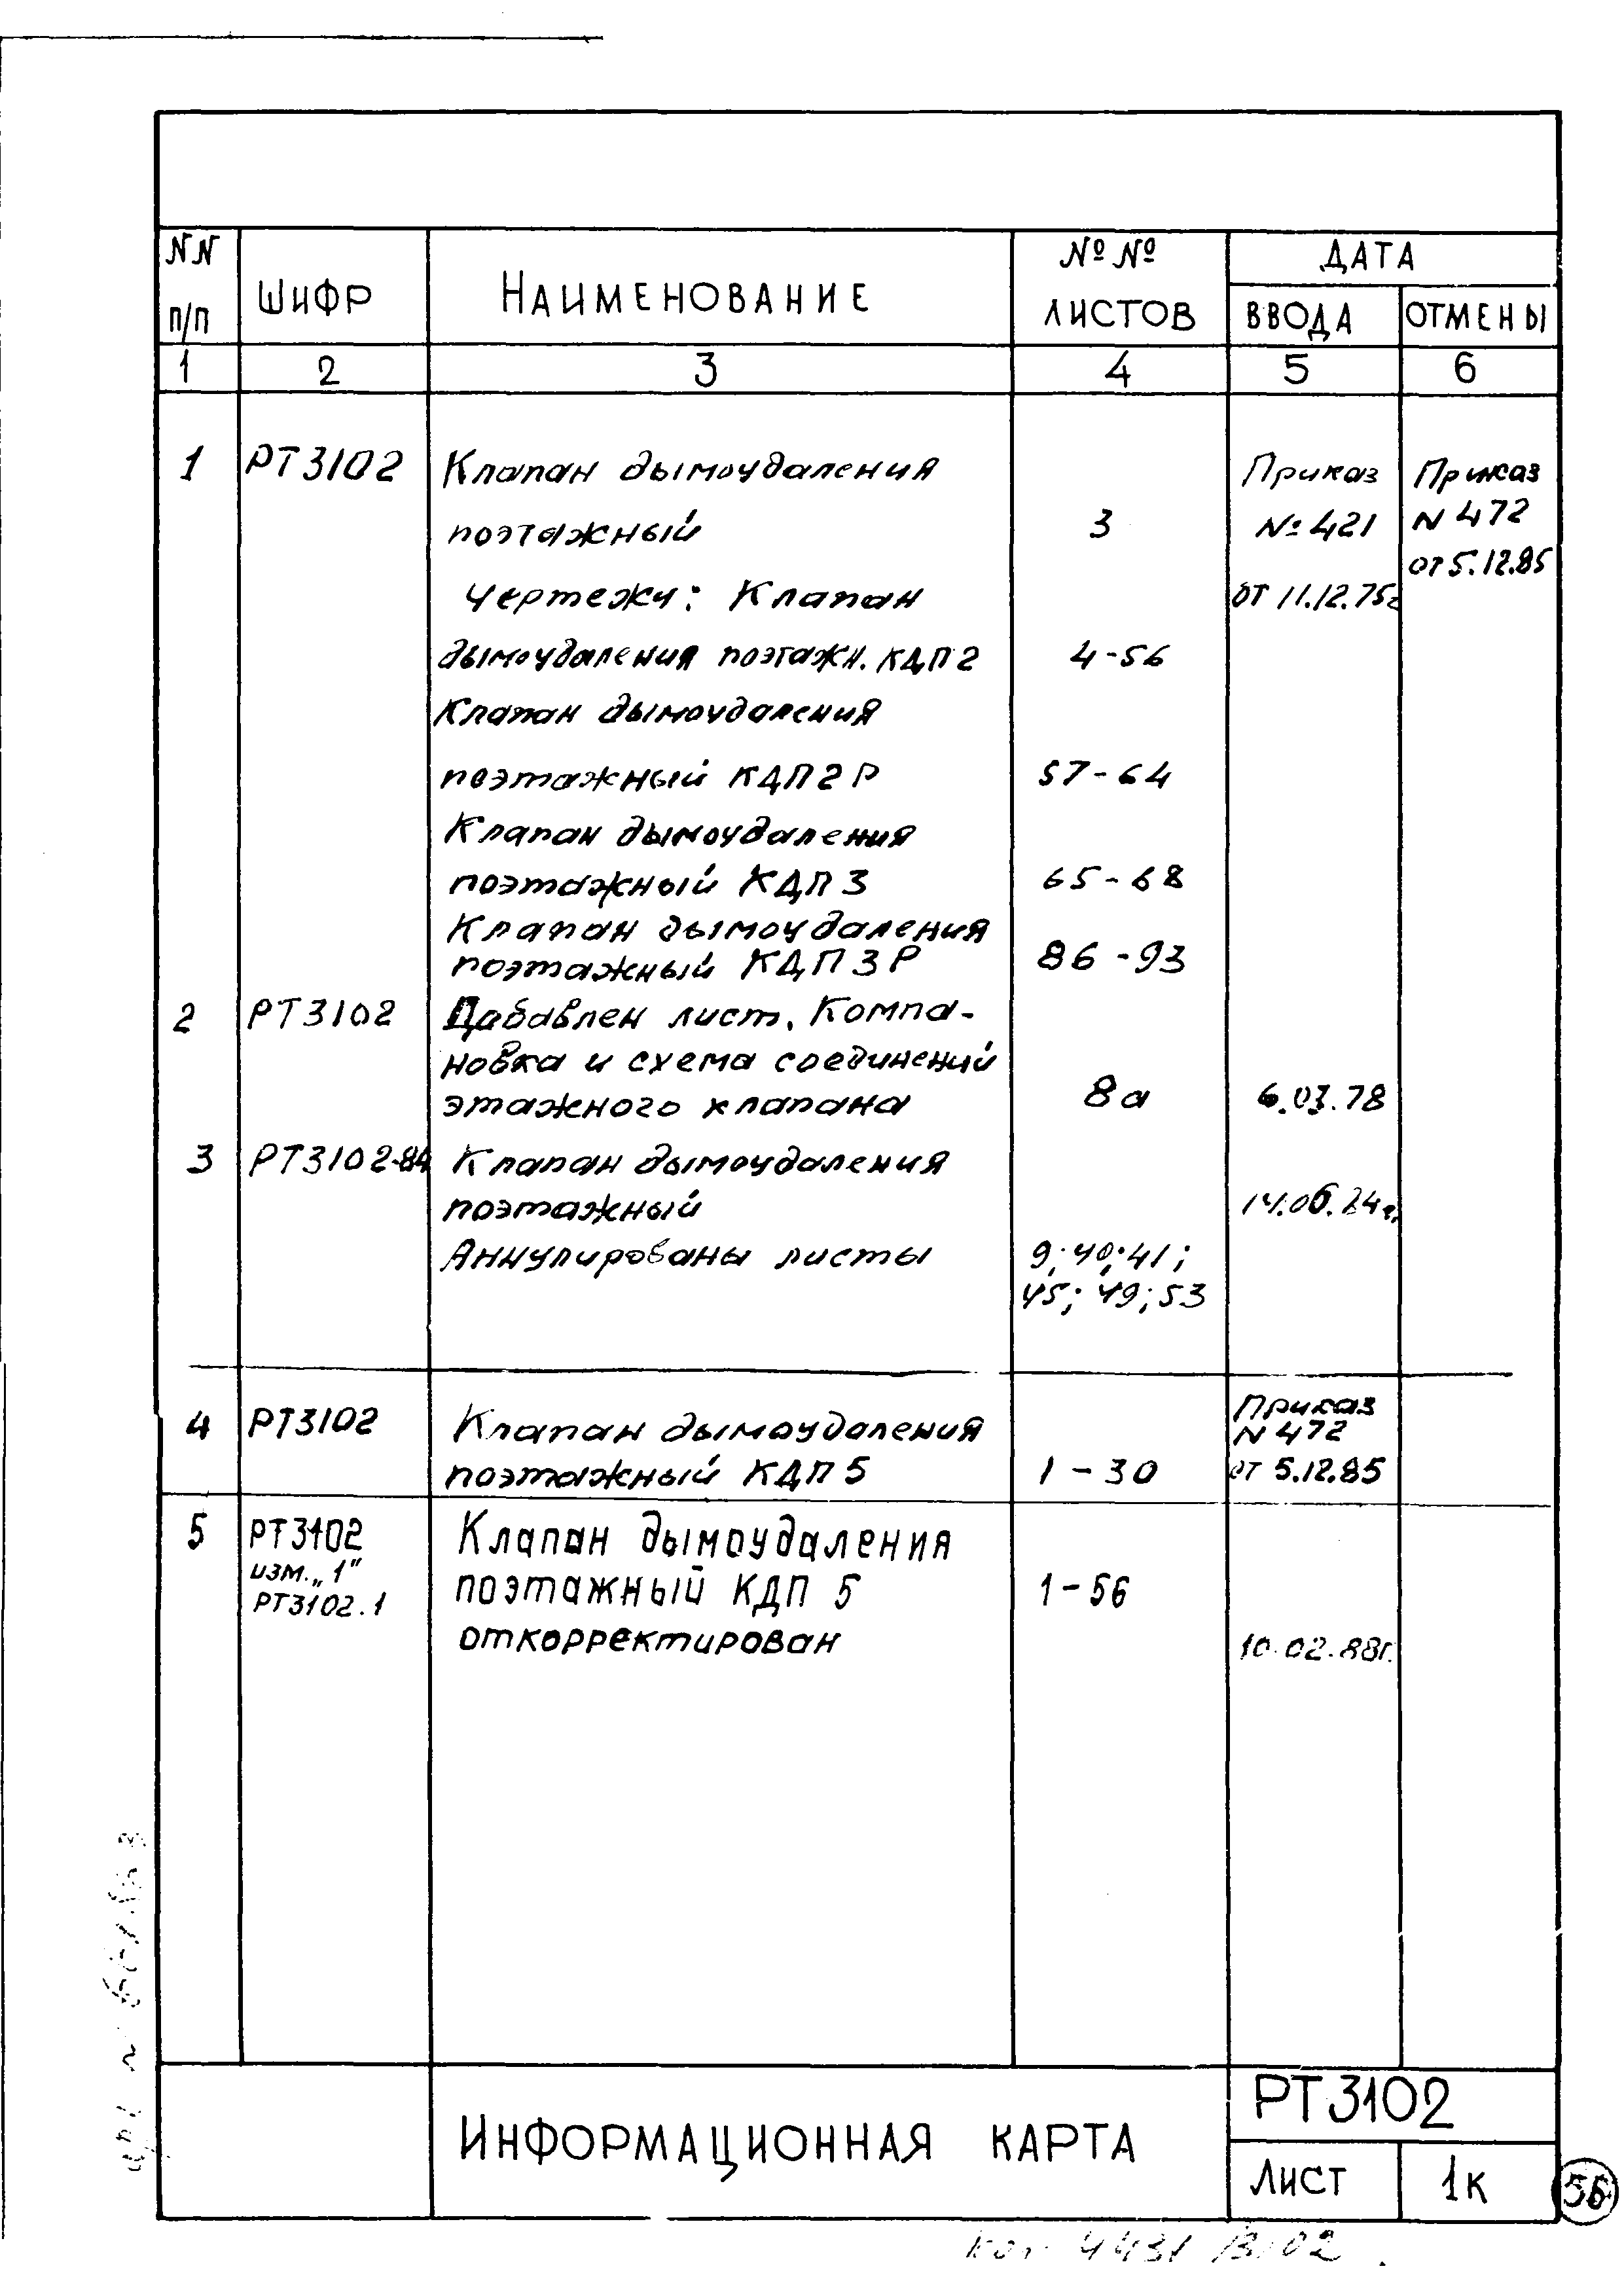 NN п/п
Шифр
Наименование
№ № листов
Дата
ввода
отмены
1 2 3 4 5 6
1 РТ3102 Клапан дымоудаления Приказ Приказ
поэтажный 3 № 421 N 472
от 5.12.85
Чертежи: Клапан от 11.12.75г
дымоудаления поэтажн. КДП2 4-56
Клапан дымоудаления
поэтажный КДП2Р 57-64
Клапан дымоудаления
поэтажный КДП3 65-68
Клапан дымоудаления
поэтажный КДП3Р 86-93
2 РТ3102 Добавлен лист. Компа-
новка и схема соединений
этажного клапана 8а 6.03.78
3 РТ3102-84 Клапан дымоудаления
поэтажный 14.06.84г.
Аннулированы листы 9; 40; 41;
45; 49; 53
Приказ
4 РТ3102 Клапан дымоудаления N 472
поэтажный КДП5 1-30 от 5.12.85
5 РТ3102 Клапан дымоудаления
изм. „1"
поэтажный КДП 5 1-56
РТ3102.1
откорректирован 10.02.88г.
Информационная карта
РТ3102
Лист 1к
56
4431